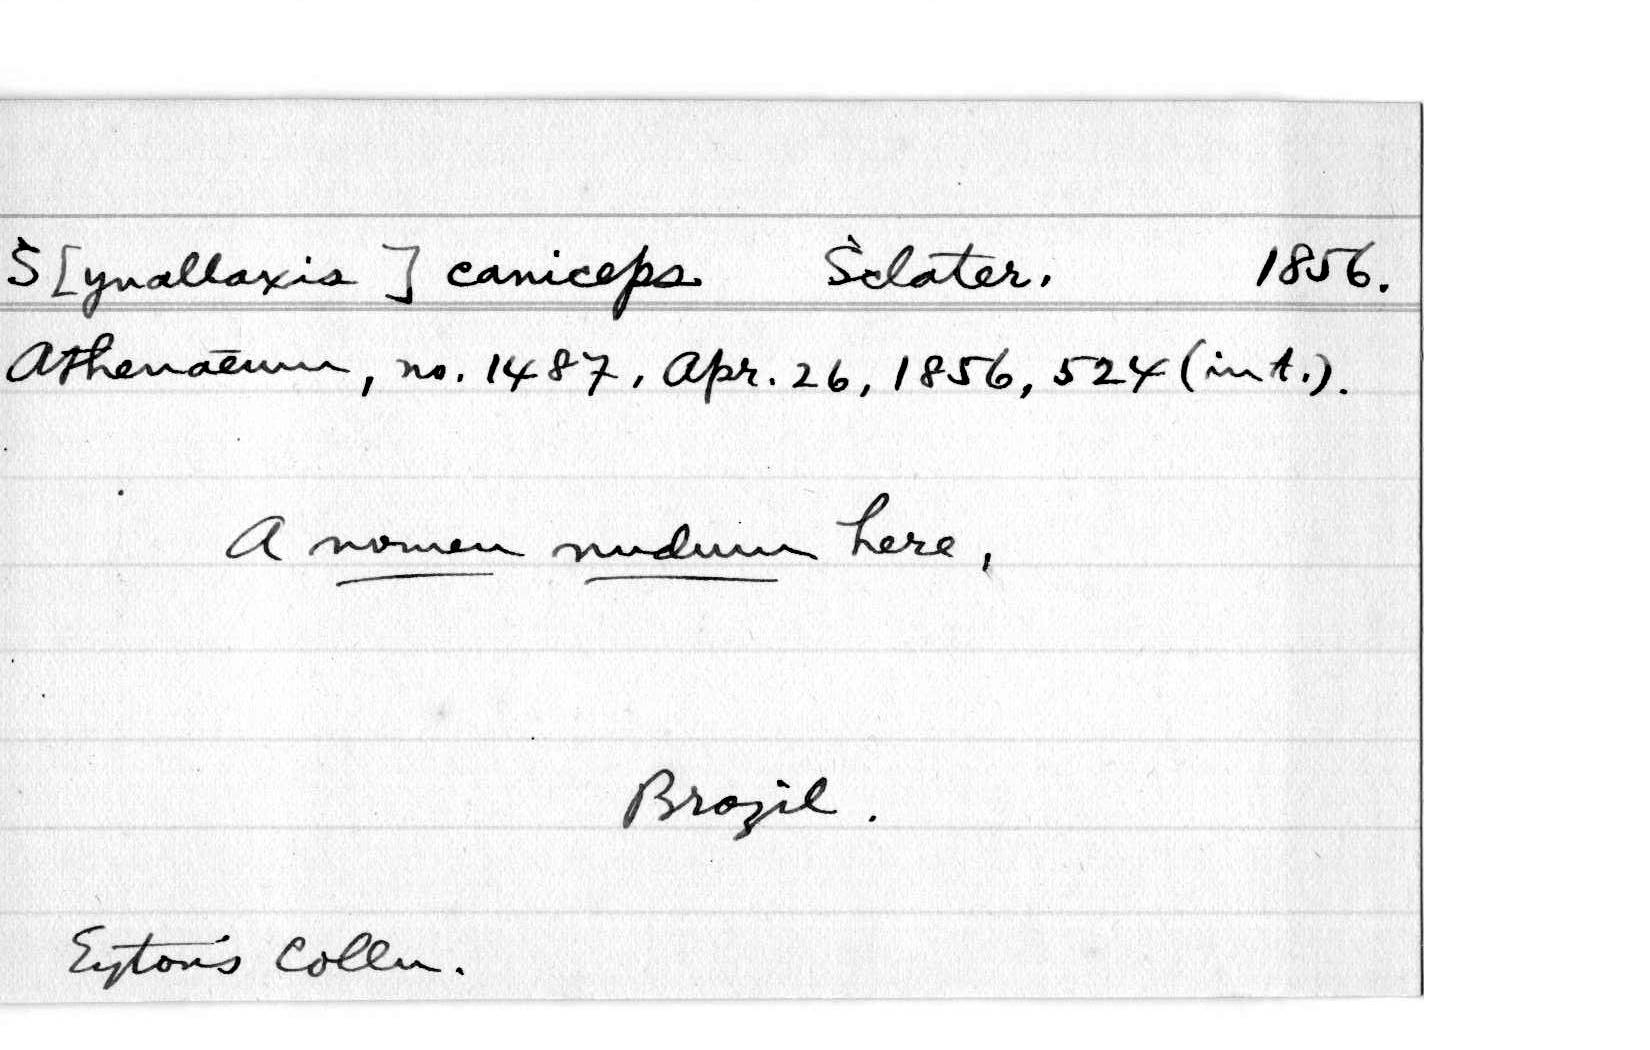 S[ynallaxis] caniceps Sclater. 1856.
Athenaeum, no. 1487, Apr. 26, 1856, 524 (in t.).
A nomen nudum here,
Brazil.
Eyton's Colln.